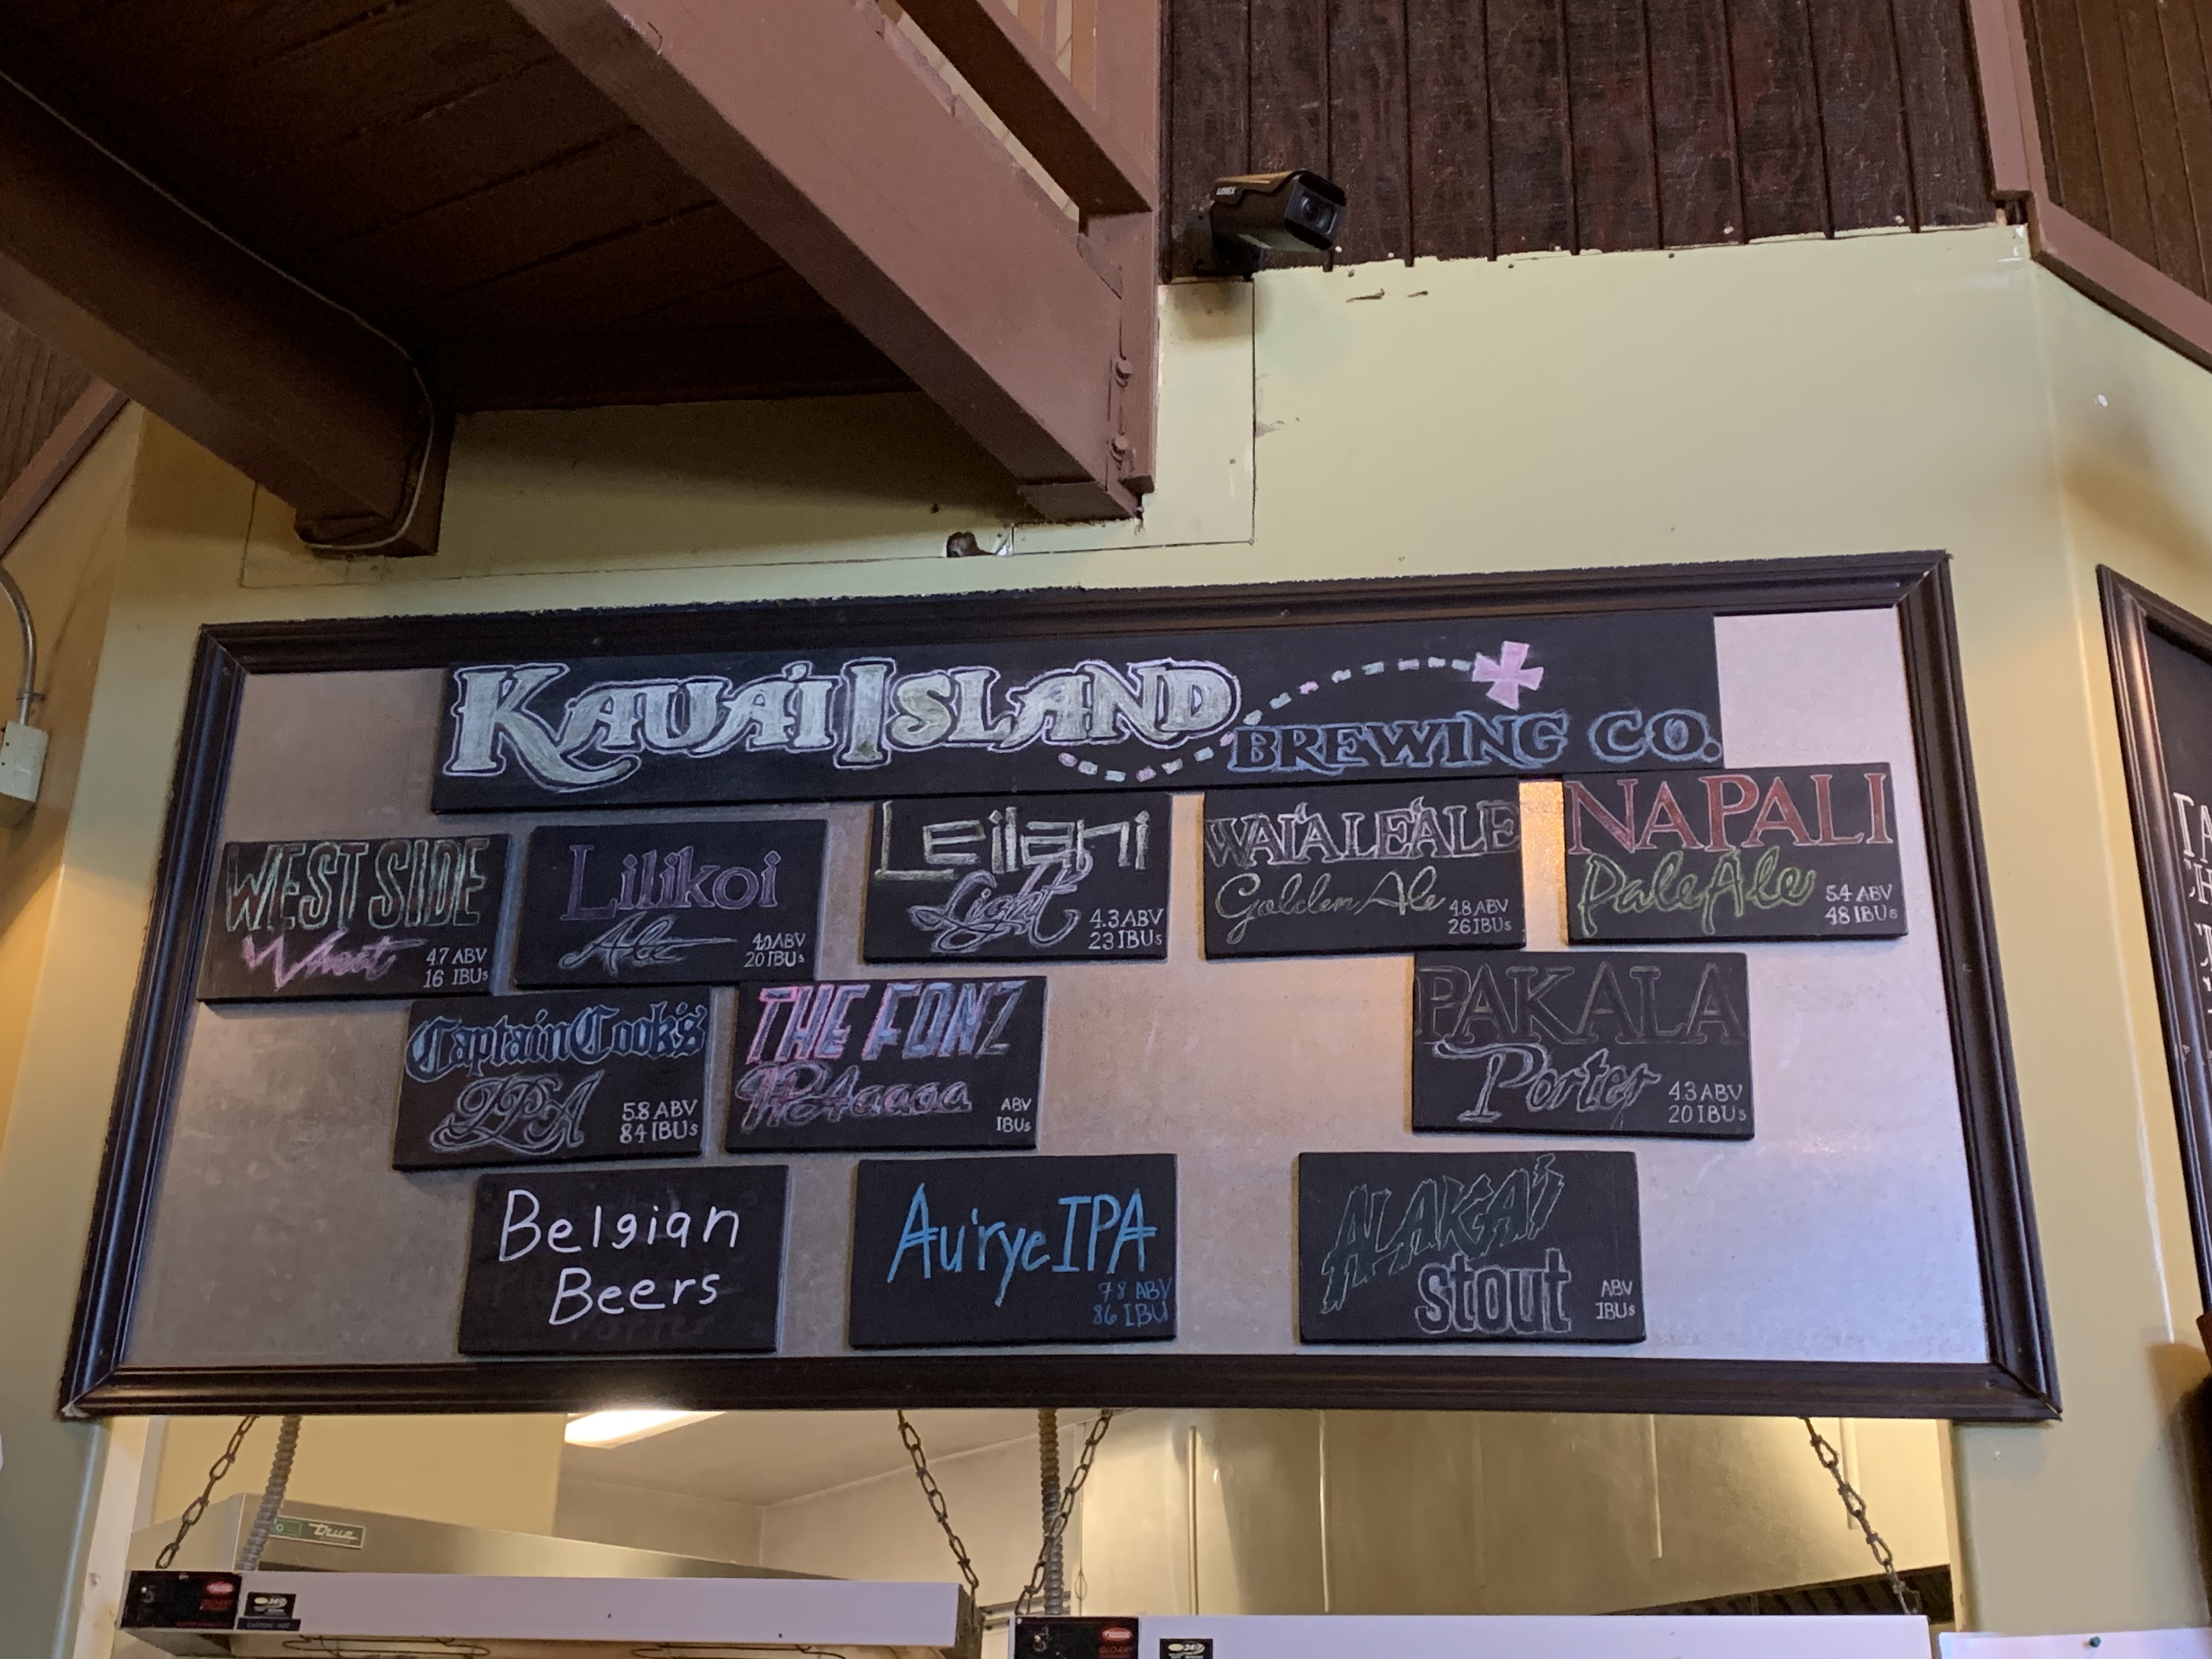 LOREX
KAUA'I ISLAND
BREWING CO.
WEST SIDE
Wheat
4.7 ABV
16 IBUs
Lilikoi
Ale
4.0 ABV
20 IBUs
Leilani
Light
4.3 ABV
23 IBUs
WAI'ALE'ALE
Golden Ale
4.8 ABV
26 IBUs
NAPALI
Pale Ale
5.4 ABV
48 IBUs
Captain Cook's
IPA
5.8 ABV
84 IBUs
THE FONZ
IPAaaaa
ABV
IBUs
PAKALA
Porter
4.3 ABV
20 IBUs
Belgian
Beers
Au'rye IPA
7.8 ABV
86 IBU
ALAKA'I
Stout
ABV
IBUs
True